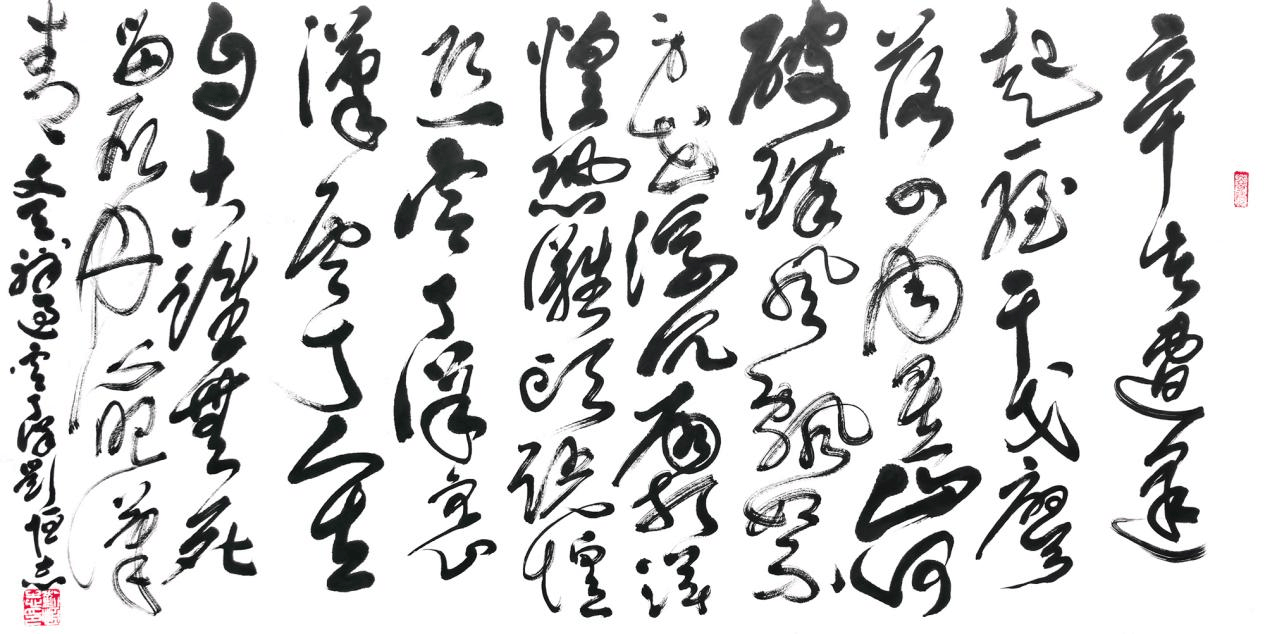 辛苦遭逢
起一經干戈寥
落四周星山河
破碎風飄絮
身世浮沉雨打萍
惶恐灘頭說惶
恐零丁洋裏
嘆零丁人生
自古誰無死
留取丹心照汗
青 文天祥過零丁洋 劉恒志